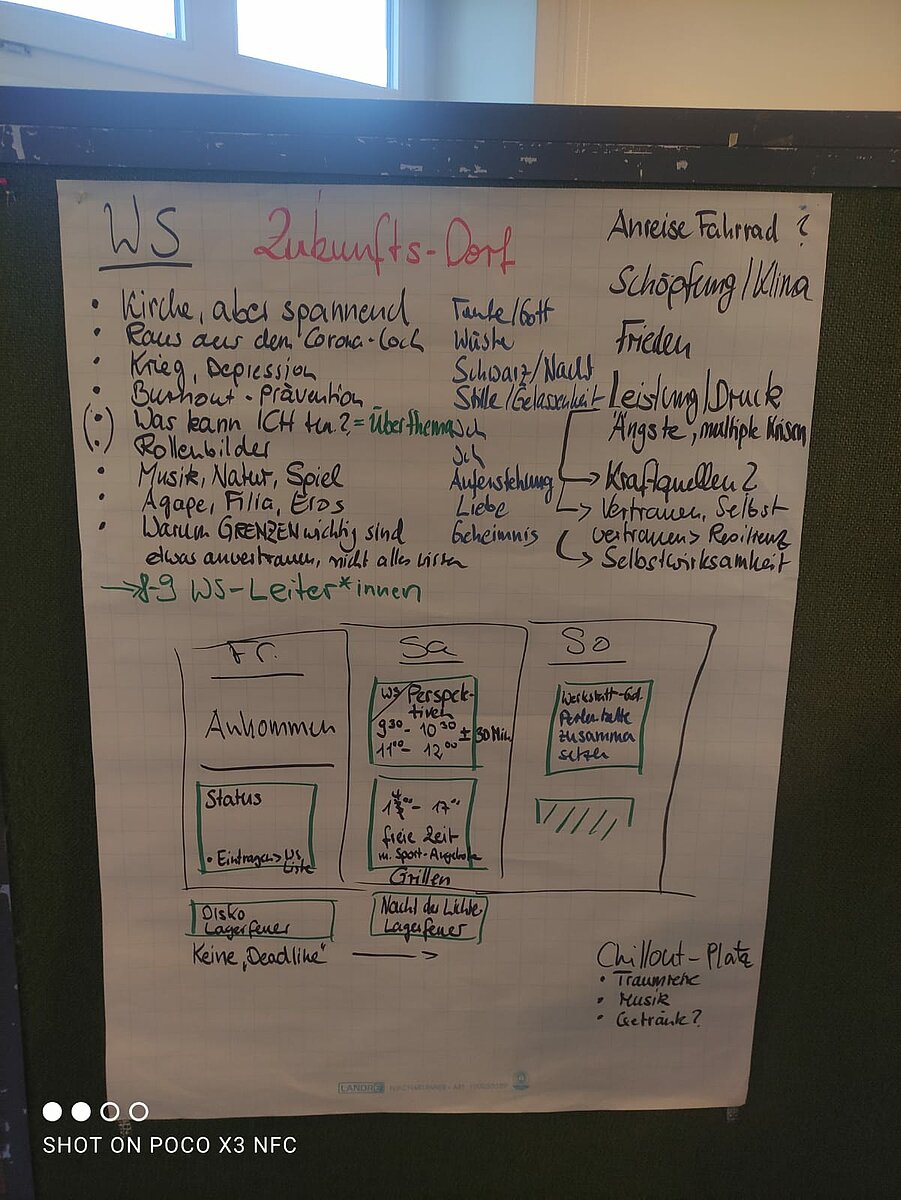 WS
Zukunfts-Dorf
Anreise Fahrrad ?
Schöpfung/Klima
Frieden
Leistung/Druck
Ängste, multiple Krisen
Kraftquellen?
Vertrauen, Selbst
vertrauen > Resilienz
Selbstwirksamkeit
• Kirche, aber spannend
• Raus aus dem Corona-Loch
• Krieg, Depression
• Burnout-Prävention
(•) Was kann ICH tun? = Überthema
(•) Rollenbilder
• Musik, Natur, Spiel
• Agape, Filia, Eros
• Warum GRENZEN wichtig sind
etwas anvertrauen, nicht alles
→ 8-9 WS-Leiter*innen
Taufe/Gott
Wüste
Schwarz/Nacht
Stille/Gelassenheit
Ich
Ich
Auferstehung
Liebe
Geheimnis
Fr.
Ankommen
Status
• Eintragen > WS
Liste
Disko
Lagerfeuer
Keine "Deadline" →
Sa
WS Perspek-
tiven
9³⁰ - 10³⁰
11⁰⁰ - 12⁰⁰
± 30 Min.
17⁰⁰
freie Zeit
m. Sport-Angebote
Grillen
Nacht der Lichter
Lagerfeuer
So
Werkstatt-God.
Perlenkette
zusamme
setzen
Chillout-Platz
• Traumreise
• Musik
• Getränk?
LANDRÉ
SHOT ON POCO X3 NFC